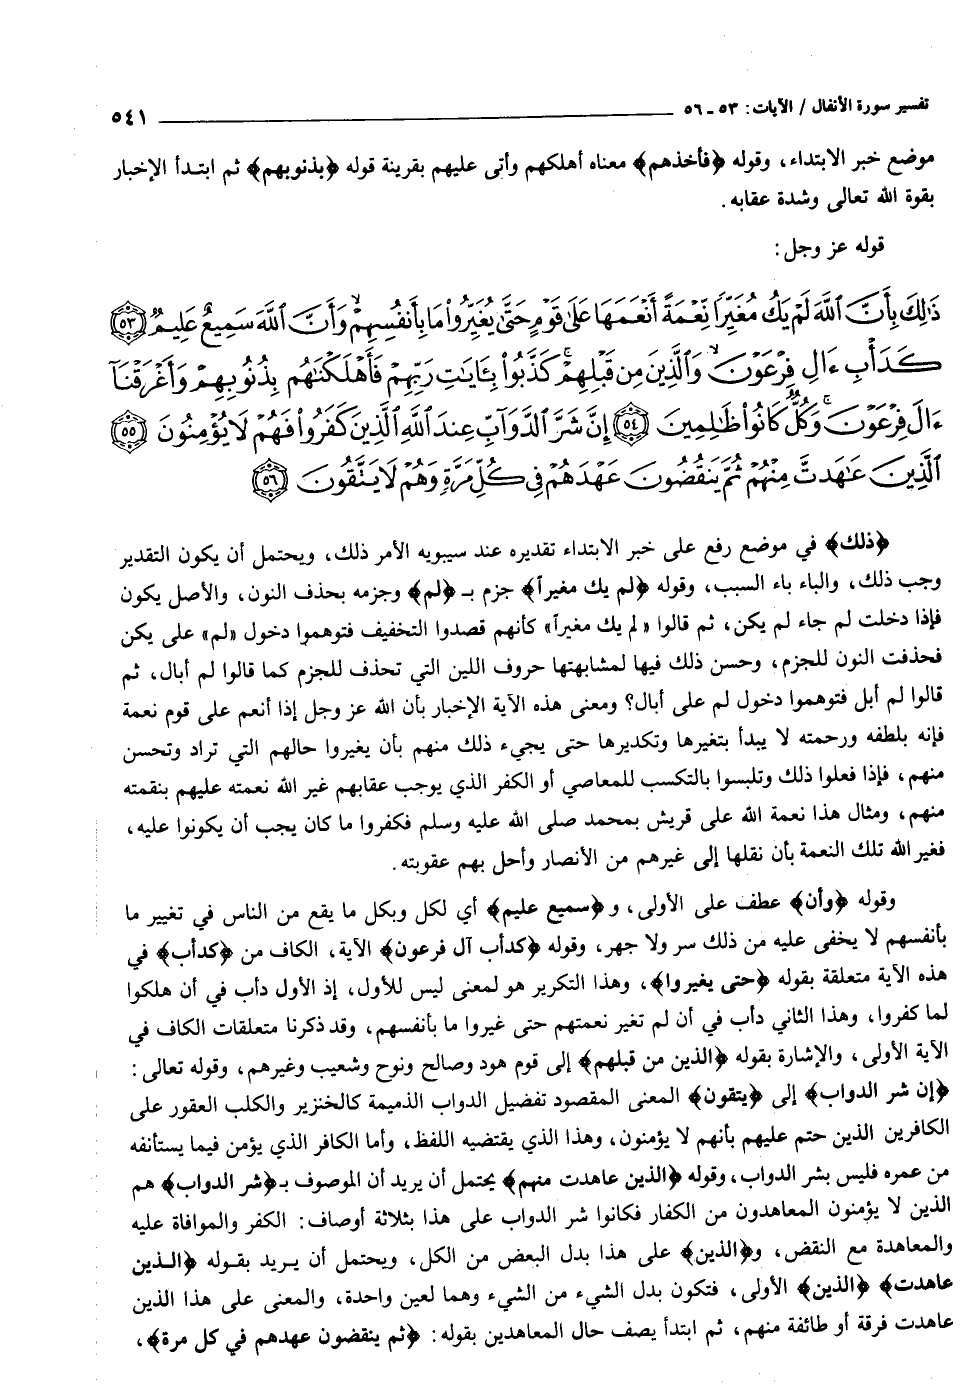 تفسير سورة الأنفال / الآيات: ٥٣ ـ ٥٦ ٥٤١
موضع خبر الابتداء، وقوله ﴿فأخذهم﴾ معناه أهلكهم وأتى عليهم بقرينة قوله ﴿بذنوبهم﴾ ثم ابتدأ الإخبار
بقوة الله تعالى وشدة عقابه.
قوله عز وجل:
ذَٰلِكَ بِأَنَّ ٱللَّهَ لَمْ يَكُ مُغَيِّرًا نِّعْمَةً أَنْعَمَهَا عَلَىٰ قَوْمٍ حَتَّىٰ يُغَيِّرُوا۟ مَا بِأَنفُسِهِمْ ۙ وَأَنَّ ٱللَّهَ سَمِيعٌ عَلِيمٌ ﴿٥٣﴾
كَدَأْبِ ءَالِ فِرْعَوْنَ ۙ وَٱلَّذِينَ مِن قَبْلِهِمْ ۚ كَذَّبُوا۟ بِـَٔايَٰتِ رَبِّهِمْ فَأَهْلَكْنَٰهُم بِذُنُوبِهِمْ وَأَغْرَقْنَآ
ءَالَ فِرْعَوْنَ ۚ وَكُلٌّ كَانُوا۟ ظَٰلِمِينَ ﴿٥٤﴾ إِنَّ شَرَّ ٱلدَّوَآبِّ عِندَ ٱللَّهِ ٱلَّذِينَ كَفَرُوا۟ فَهُمْ لَا يُؤْمِنُونَ ﴿٥٥﴾
ٱلَّذِينَ عَٰهَدتَّ مِنْهُمْ ثُمَّ يَنقُضُونَ عَهْدَهُمْ فِى كُلِّ مَرَّةٍ وَهُمْ لَا يَتَّقُونَ ﴿٥٦﴾
﴿ذلك﴾ في موضع رفع على خبر الابتداء تقديره عند سيبويه الأمر ذلك، ويحتمل أن يكون التقدير
وجب ذلك، والباء باء السبب، وقوله ﴿لم يك مغيراً﴾ جزم بـ ﴿لم﴾ وجزمه بحذف النون، والأصل يكون
فإذا دخلت لم جاء لم يكن، ثم قالوا «لم يك مغيراً» كأنهم قصدوا التخفيف فتوهموا دخول «لم» على يكن
فحذفت النون للجزم، وحسن ذلك فيها لمشابهتها حروف اللين التي تحذف للجزم كما قالوا لم أبال، ثم
قالوا لم أبل فتوهموا دخول لم على أبال؟ ومعنى هذه الآية الإخبار بأن الله عز وجل إذا أنعم على قوم نعمة
فإنه بلطفه ورحمته لا يبدأ بتغيرها وتكديرها حتى يجيء ذلك منهم بأن يغيروا حالهم التي تراد وتحسن
منهم، فإذا فعلوا ذلك وتلبسوا بالتكسب للمعاصي أو الكفر الذي يوجب عقابهم غير الله نعمته عليهم بنقمته
منهم، ومثال هذا نعمة الله على قريش بمحمد صلى الله عليه وسلم فكفروا ما كان يجب أن يكونوا عليه،
فغير الله تلك النعمة بأن نقلها إلى غيرهم من الأنصار وأحل بهم عقوبته.
وقوله ﴿وأن﴾ عطف على الأولى، و ﴿سميع عليم﴾ أي لكل وبكل ما يقع من الناس في تغيير ما
بأنفسهم لا يخفى عليه من ذلك سر ولا جهر، وقوله ﴿كدأب آل فرعون﴾ الآية، الكاف من ﴿كدأب﴾ في
هذه الآية متعلقة بقوله ﴿حتى يغيروا﴾، وهذا التكرير هو لمعنى ليس للأول، إذ الأول دأب في أن هلكوا
لما كفروا، وهذا الثاني دأب في أن لم تغير نعمتهم حتى غيروا ما بأنفسهم، وقد ذكرنا متعلقات الكاف في
الآية الأولى، والإشارة بقوله ﴿الذين من قبلهم﴾ إلى قوم هود وصالح ونوح وشعيب وغيرهم، وقوله تعالى:
﴿إن شر الدواب﴾ إلى ﴿يتقون﴾ المعنى المقصود تفضيل الدواب الذميمة كالخنزير والكلب العقور على
الكافرين الذين حتم عليهم بأنهم لا يؤمنون، وهذا الذي يقتضيه اللفظ، وأما الكافر الذي يؤمن فيما يستأنفه
من عمره فليس بشر الدواب، وقوله ﴿الذين عاهدت منهم﴾ يحتمل أن يريد أن الموصوف بـ﴿شر الدواب﴾ هم
الذين لا يؤمنون المعاهدون من الكفار فكانوا شر الدواب على هذا بثلاثة أوصاف: الكفر والموافاة عليه
والمعاهدة مع النقض، و﴿الذين﴾ على هذا بدل البعض من الكل، ويحتمل أن يريد بقوله ﴿الذين
عاهدت﴾ ﴿الذين﴾ الأولى، فتكون بدل الشيء من الشيء وهما لعين واحدة، والمعنى على هذا الذين
عاهدت فرقة أو طائفة منهم، ثم ابتدأ يصف حال المعاهدين بقوله: ﴿ثم ينقضون عهدهم في كل مرة﴾،